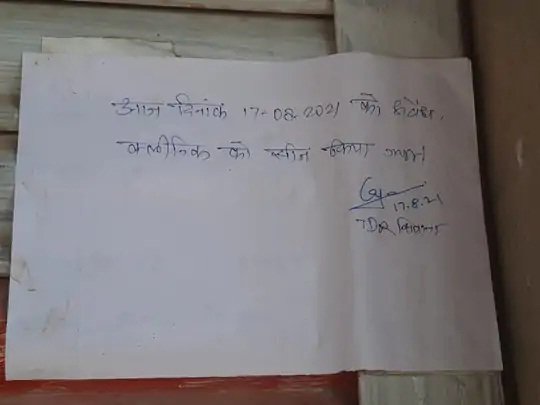 आज दिनांक 17-08-2021 को
क्लीनिक को सील किया गया।
17.8.21